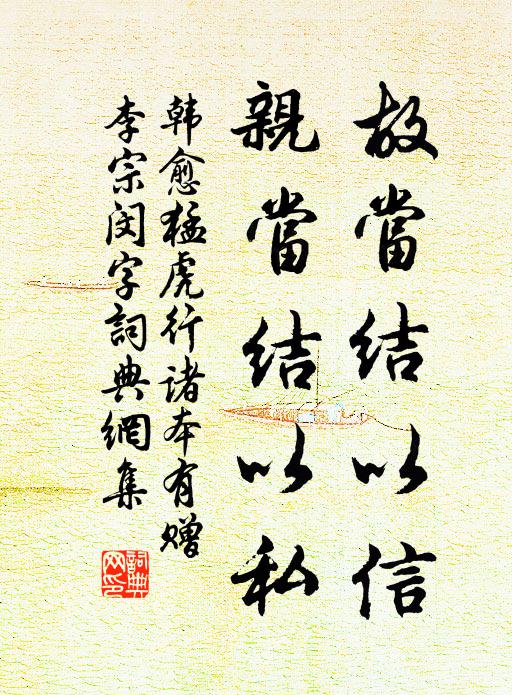 故當結以信
親當結以私
韩愈猛虎行诸本有赠
李宗闵字詞典網集
詞典
网印